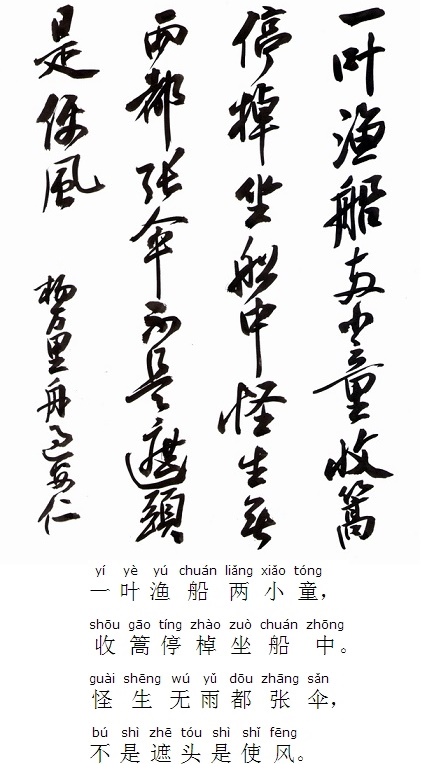 一叶渔船两小童收篙
停棹坐船中怪生无
雨都张伞不是遮頭
是使風
杨万里舟过安仁
yí yè yú chuán liǎng xiǎo tóng
一叶渔船两小童，
shōu gāo tíng zhào zuò chuán zhōng
收篙停棹坐船中。
guài shēng wú yǔ dōu zhāng sǎn
怪生无雨都张伞，
bú shì zhē tóu shì shǐ fēng
不是遮头是使风。